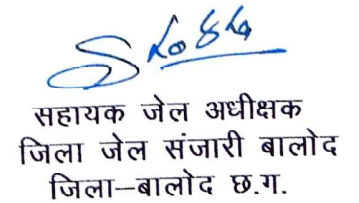 सहायक जेल अधीक्षक
जिला जेल संजारी बालोद
जिला–बालोद छ.ग.